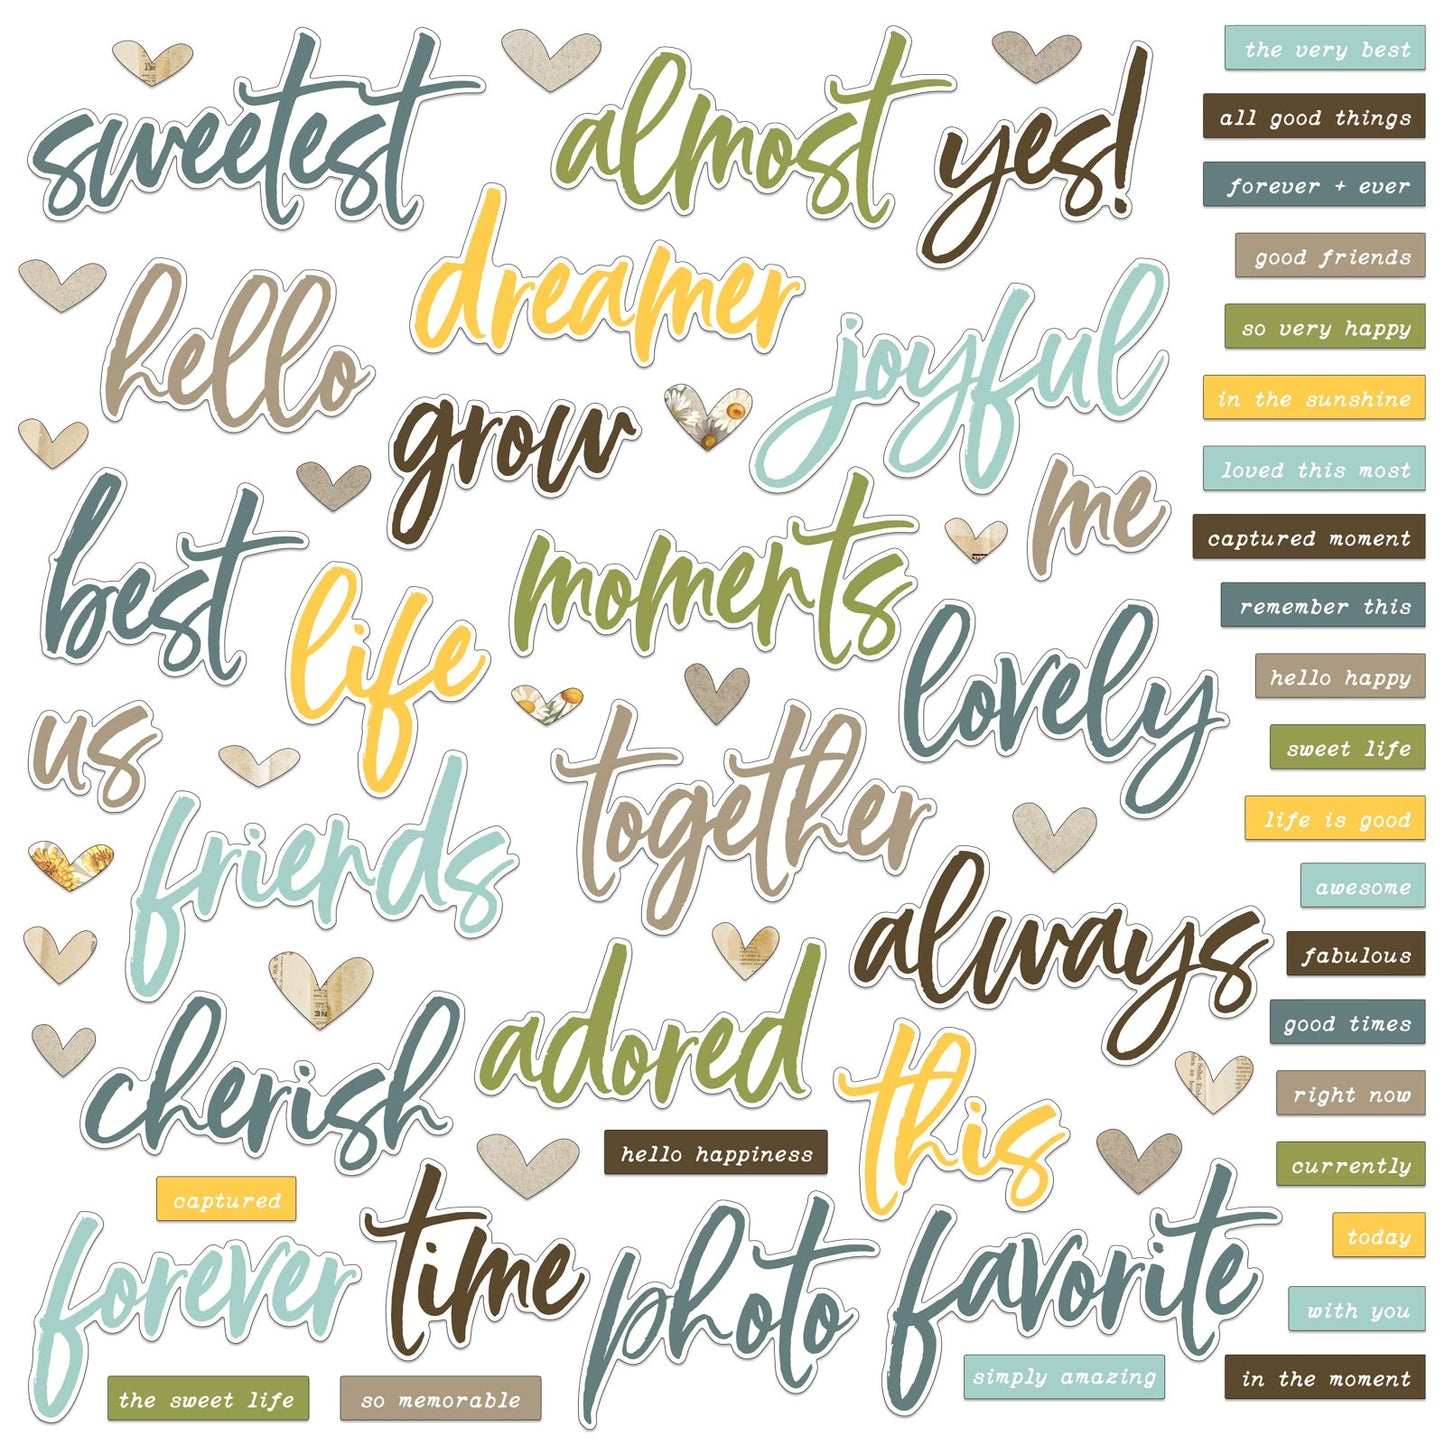 sweetest
almost
yes!
the very best
all good things
forever + ever
good friends
so very happy
in the sunshine
loved this most
captured moment
remember this
hello happy
sweet life
life is good
awesome
fabulous
good times
right now
currently
today
with you
in the moment
dreamer
hello
joyful
grow
me
best
life
moments
lovely
us
together
friends
always
adored
cherish
this
hello happiness
captured
forever
time
photo
favorite
simply amazing
the sweet life
so memorable